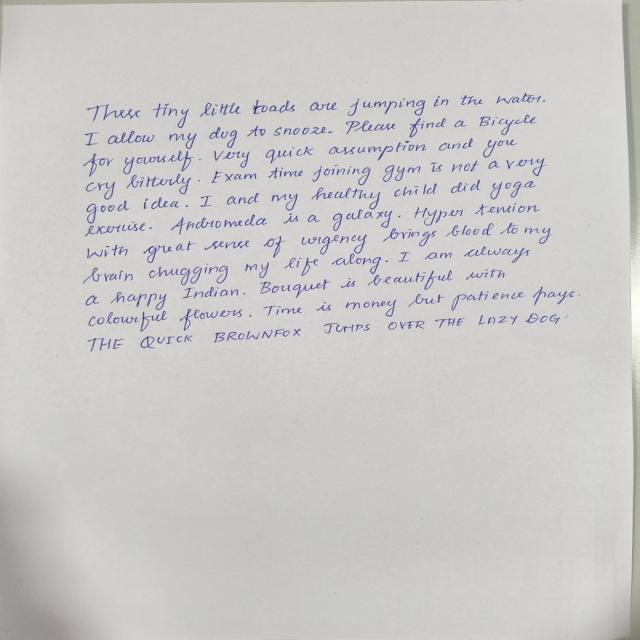 These tiny little toads are jumping in the water.
I allow my dog to snooze. Please find a Bicycle
for yourself. Very quick assumption and you
cry bitterly. Exam time joining gym is not a very
good idea. I and my healthy child did yoga
exercise. Andromeda is a galaxy. Hyper tension
with great sense of urgency brings blood to my
brain chugging my life along. I am always
a happy Indian. Bouquet is beautiful with
colourful flowers. Time is money but patience pays.
THE QUICK BROWNFOX JUMPS OVER THE LAZY DOG